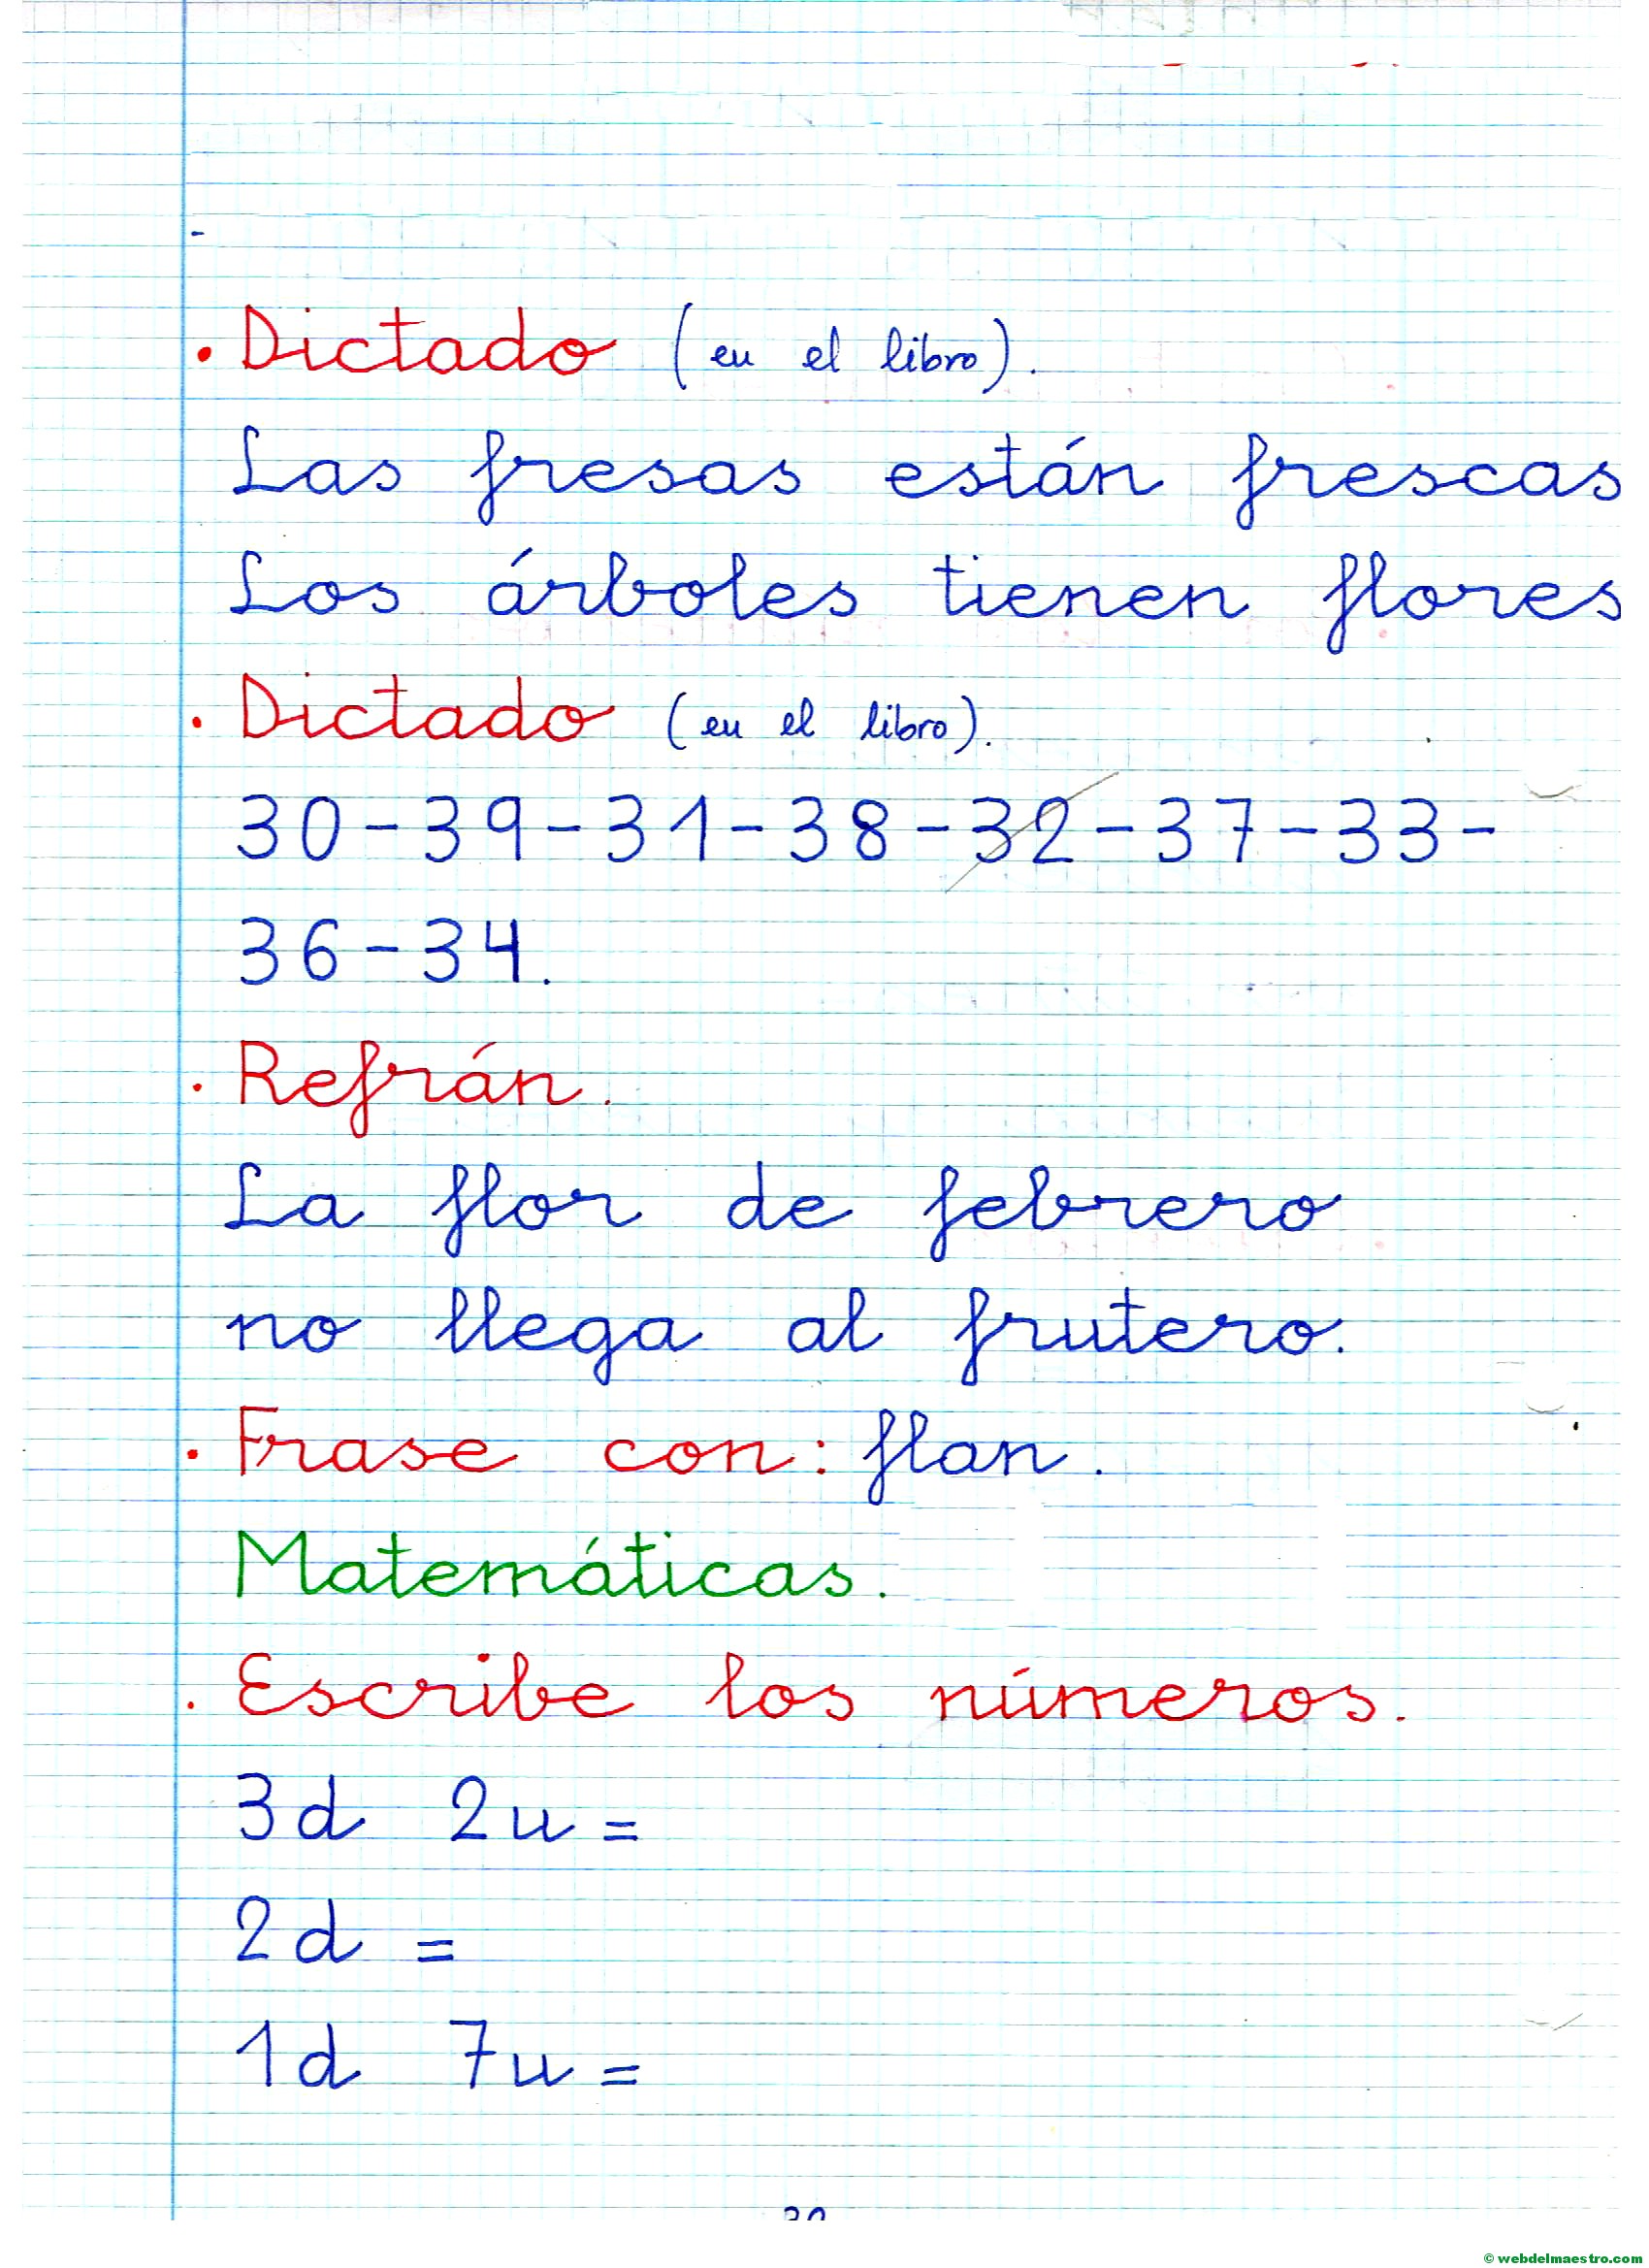 . Dictado (en el libro).
Las fresas están frescas
Los árboles tienen flores
. Dictado (en el libro).
30-39-31-38-32-37-33-
36-34.
. Refrán.
La flor de febrero
no llega al frutero.
. Frase con: flan.
Matemáticas.
. Escribe los números.
3d 2u=
2d =
1d 7u=
© webdelmaestro.com